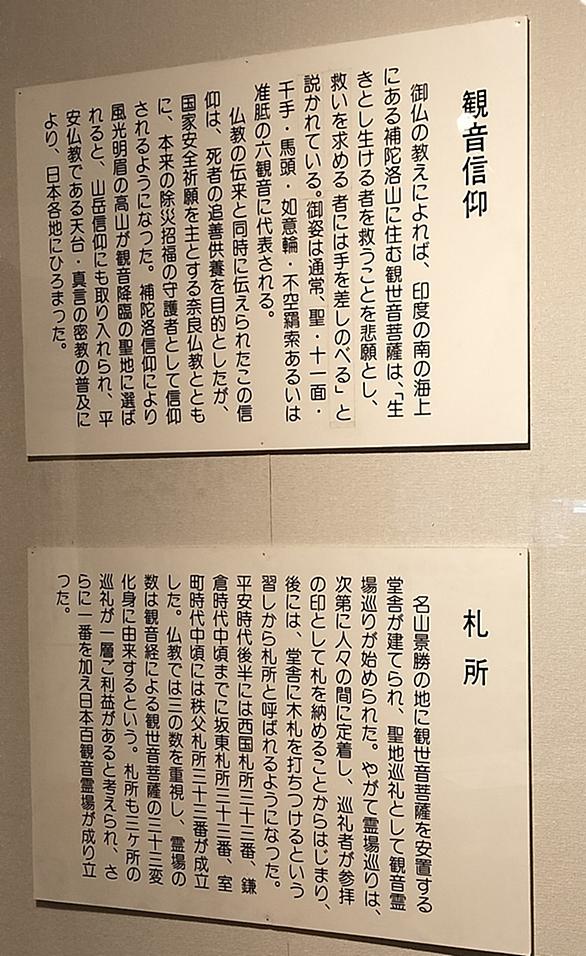 観音信仰
御仏の教えによれば、印度の南の海上
にある補陀洛山に住む観世音菩薩は、「生
きとし生ける者を救うことを悲願とし、
救いを求める者には手を差しのべる」と
説かれている。御姿は通常、聖・十一面・
千手・馬頭・如意輪・不空羂索あるいは
准胝の六観音に代表される。
仏教の伝来と同時に伝えられたこの信
仰は、死者の追善供養を目的としたが、
国家安全祈願を主とする奈良仏教ととも
に、本来の除災招福の守護者として信仰
されるようになった。補陀洛信仰により
風光明眉の高山が観音降臨の聖地に選ば
れると、山岳信仰にも取り入れられ、平
安仏教である天台・真言の密教の普及に
より、日本各地にひろまった。
札所
名山景勝の地に観世音菩薩を安置する
堂舎が建てられ、聖地巡礼として観音霊
場巡りが始められた。やがて霊場巡りは、
次第に人々の間に定着し、巡礼者が参拝
の印として札を納めることからはじまり、
後には、堂舎に木札を打ちつけるという
習しから札所と呼ばれるようになった。
平安時代後半には西国札所三十三番、鎌
倉時代中頃までに坂東札所三十三番、室
町時代中頃には秩父札所三十三番が成立
した。仏教では三の数を重視し、霊場の
数は観音経による観世音菩薩の三十三変
化身に由来するという。札所も三ヶ所の
巡礼が一層ご利益があると考えられ、さ
らに一番を加え日本百観音霊場が成り立
つた。